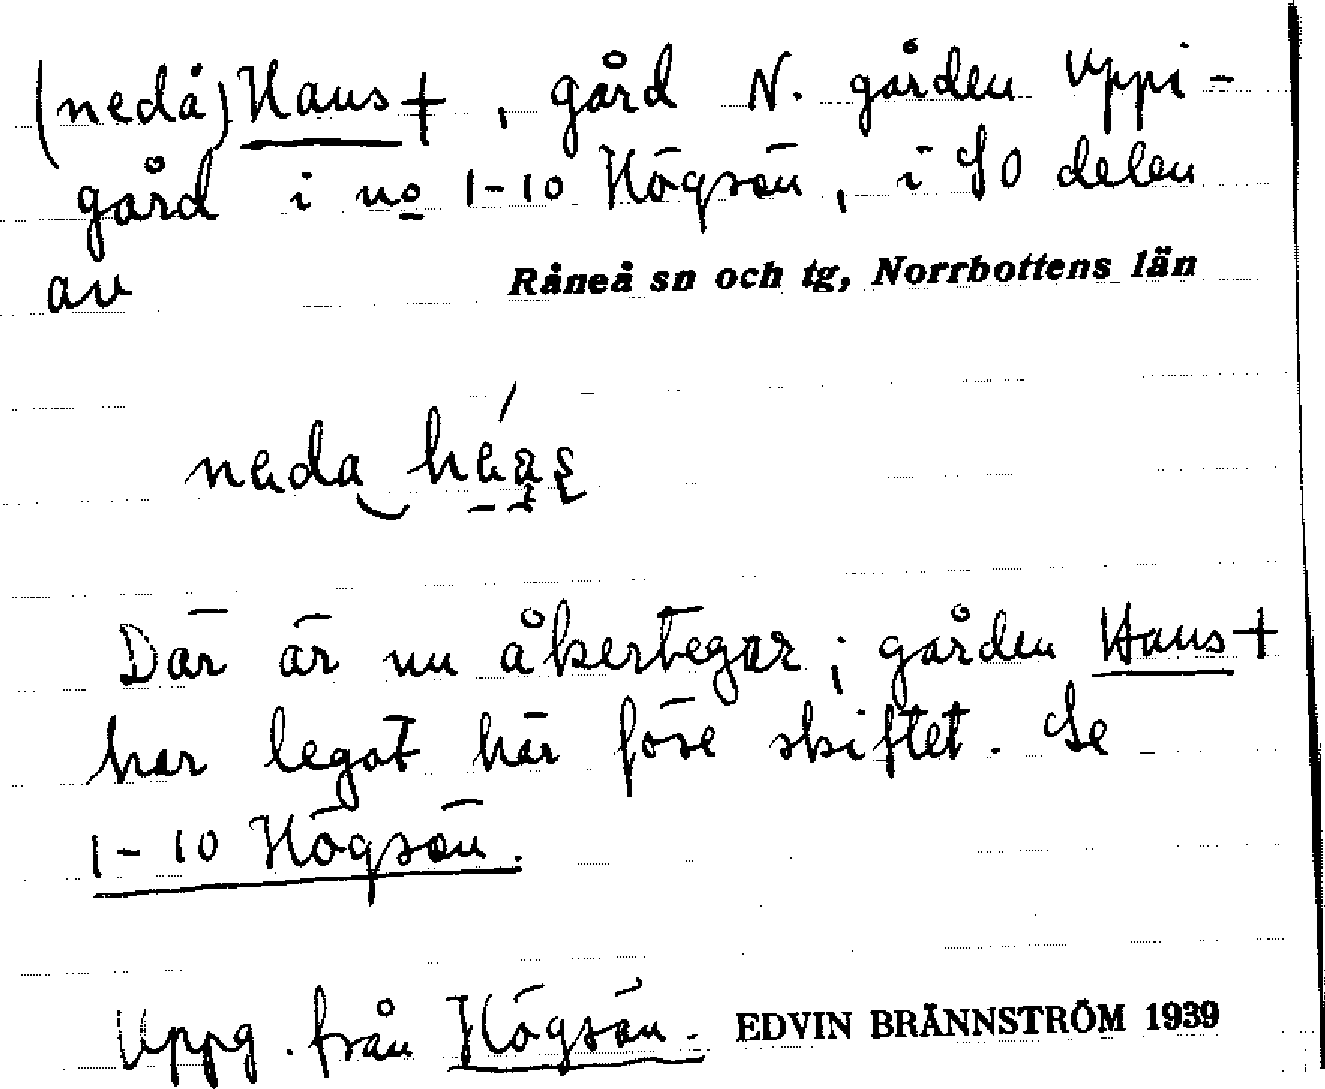 (nedå) Haus +, gård N. gården Uppi-
gård i no 1-10 Högsön, i SO delen
av Råneå sn och tg, Norrbottens län
Där är nu åkertegar; gården Haus +
har legat här före skiftet. Se
1-10 Högsön.
Uppg. från Högsön. EDVIN BRÄNNSTRÖM 1939